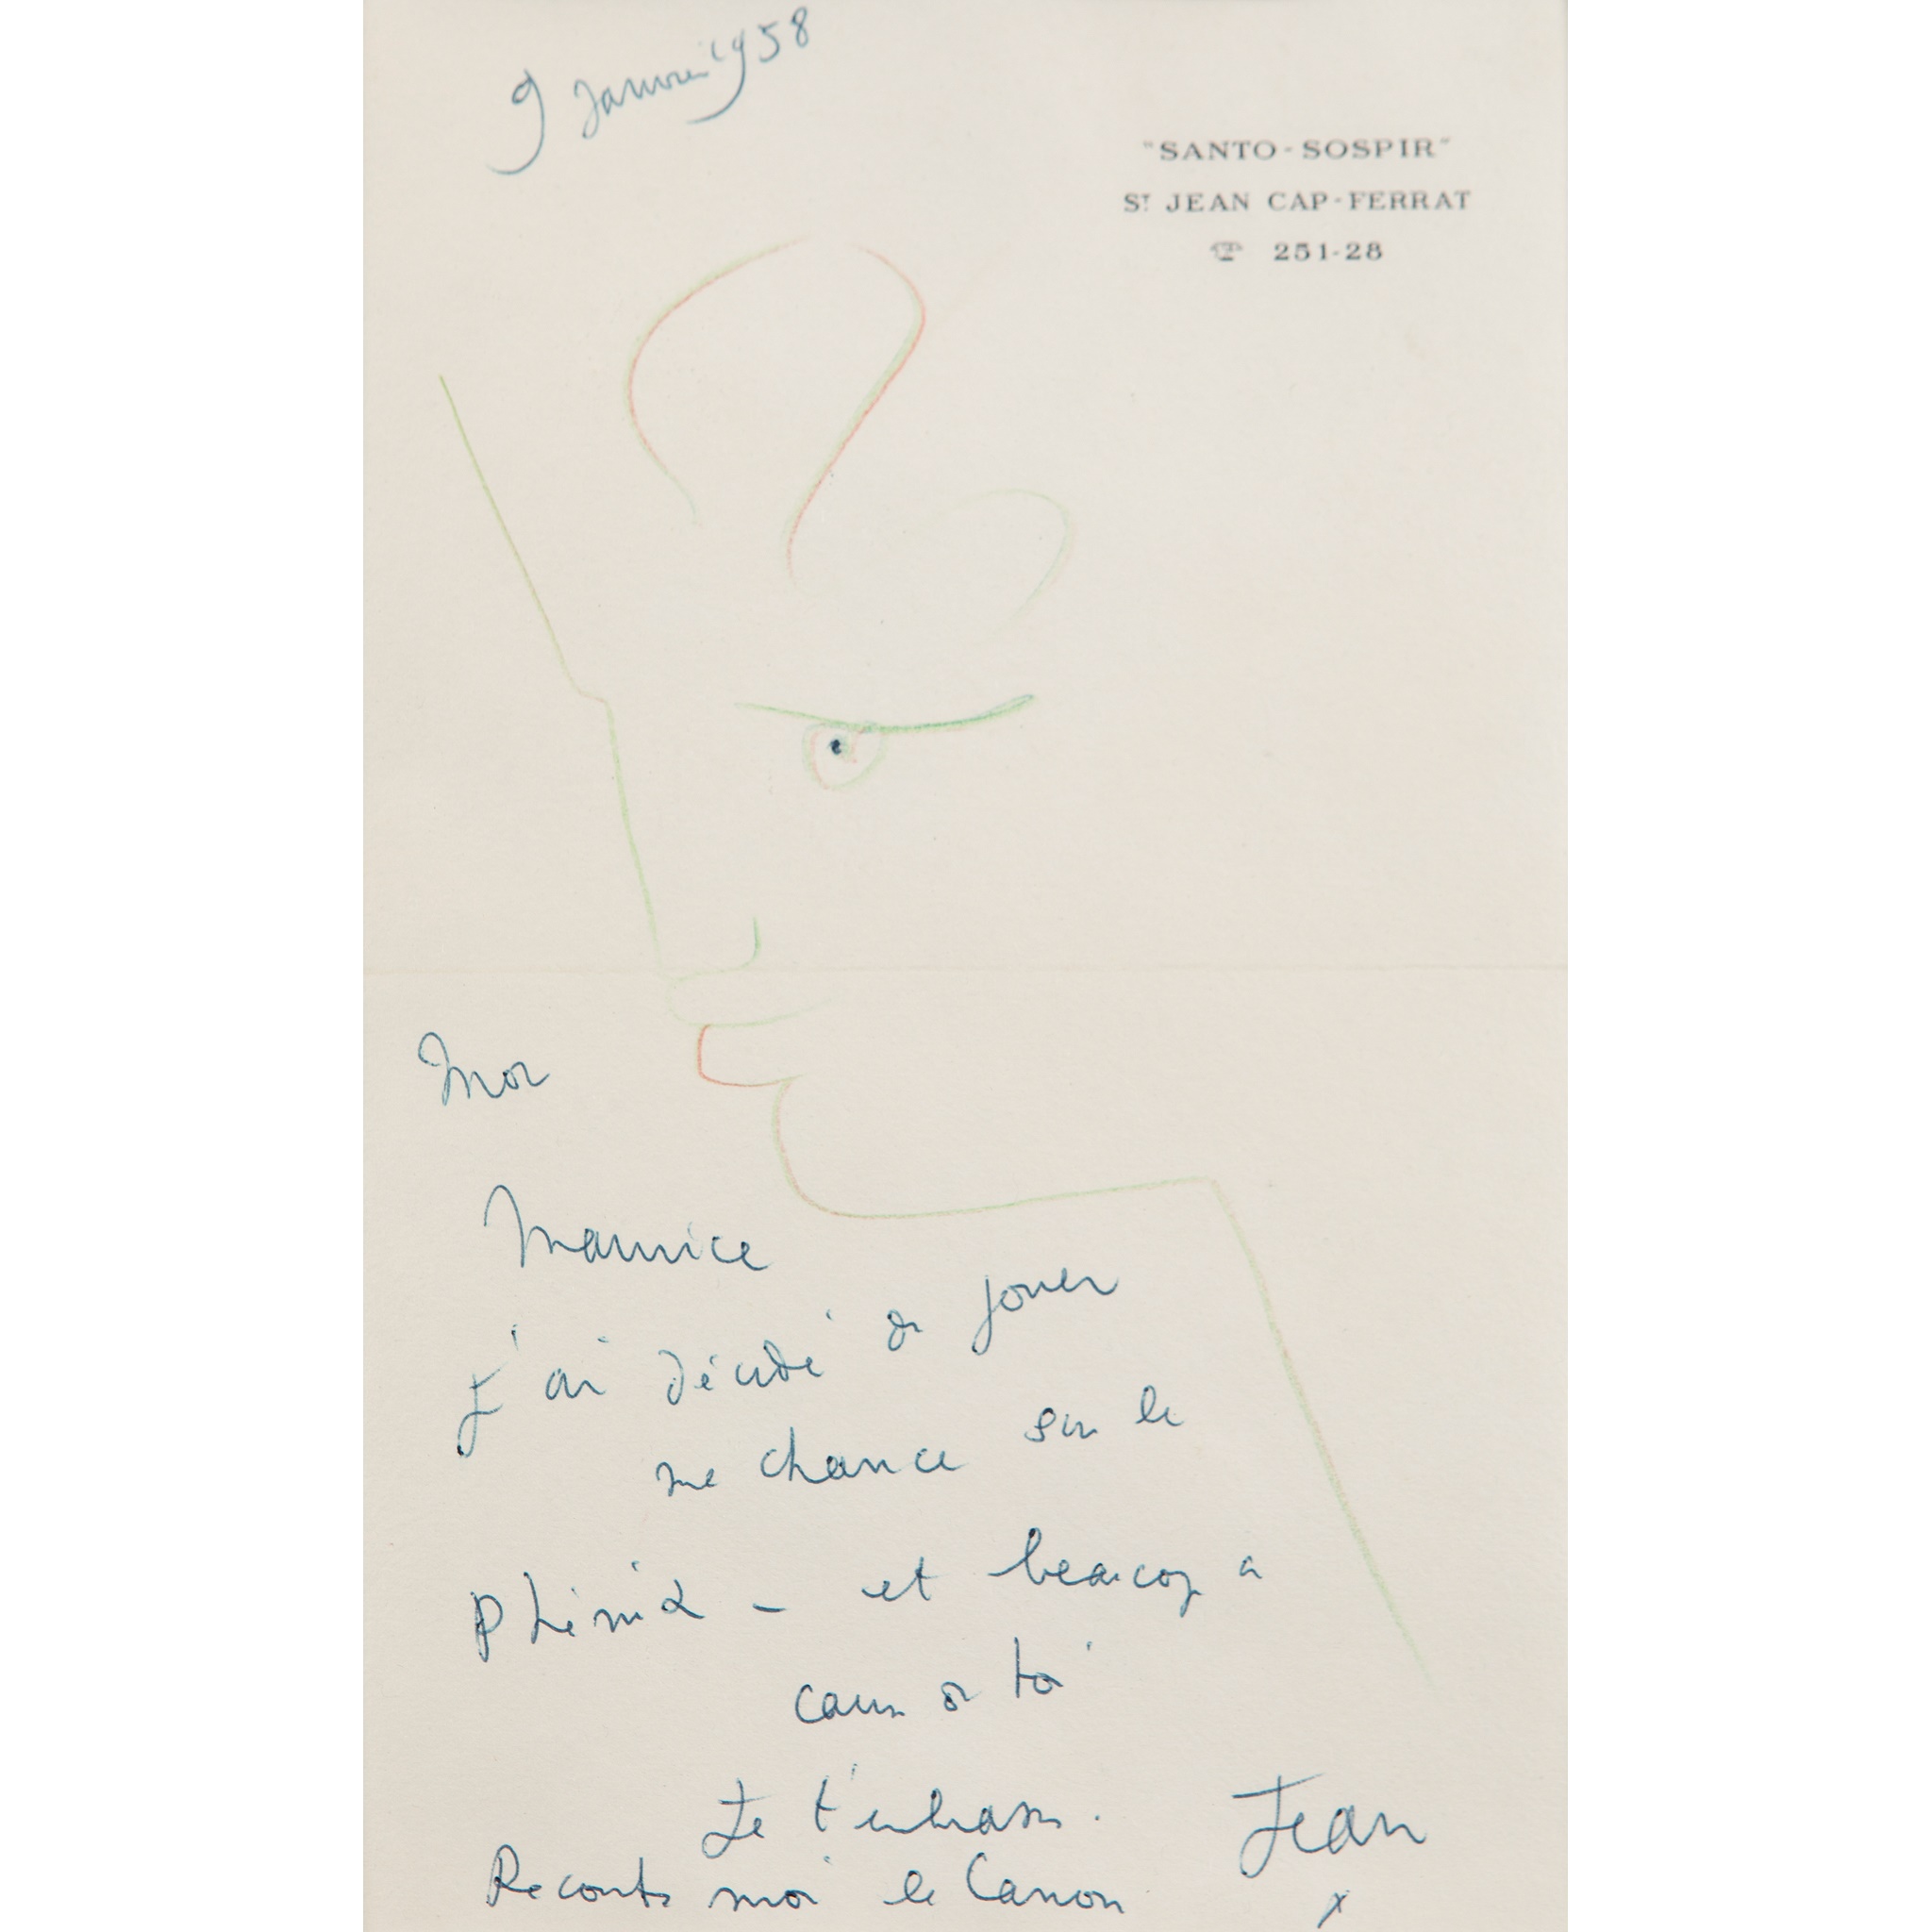 9 Janvier 1958
"SANTO-SOSPIR"
ST JEAN CAP-FERRAT
☎ 251-28
Mon
Maurice
J'ai décidé de jouer
ma chance sur le
Phénix – et beaucoup à
cause de toi
Je t'embrasse.
Jean
Raconte moi le Canon